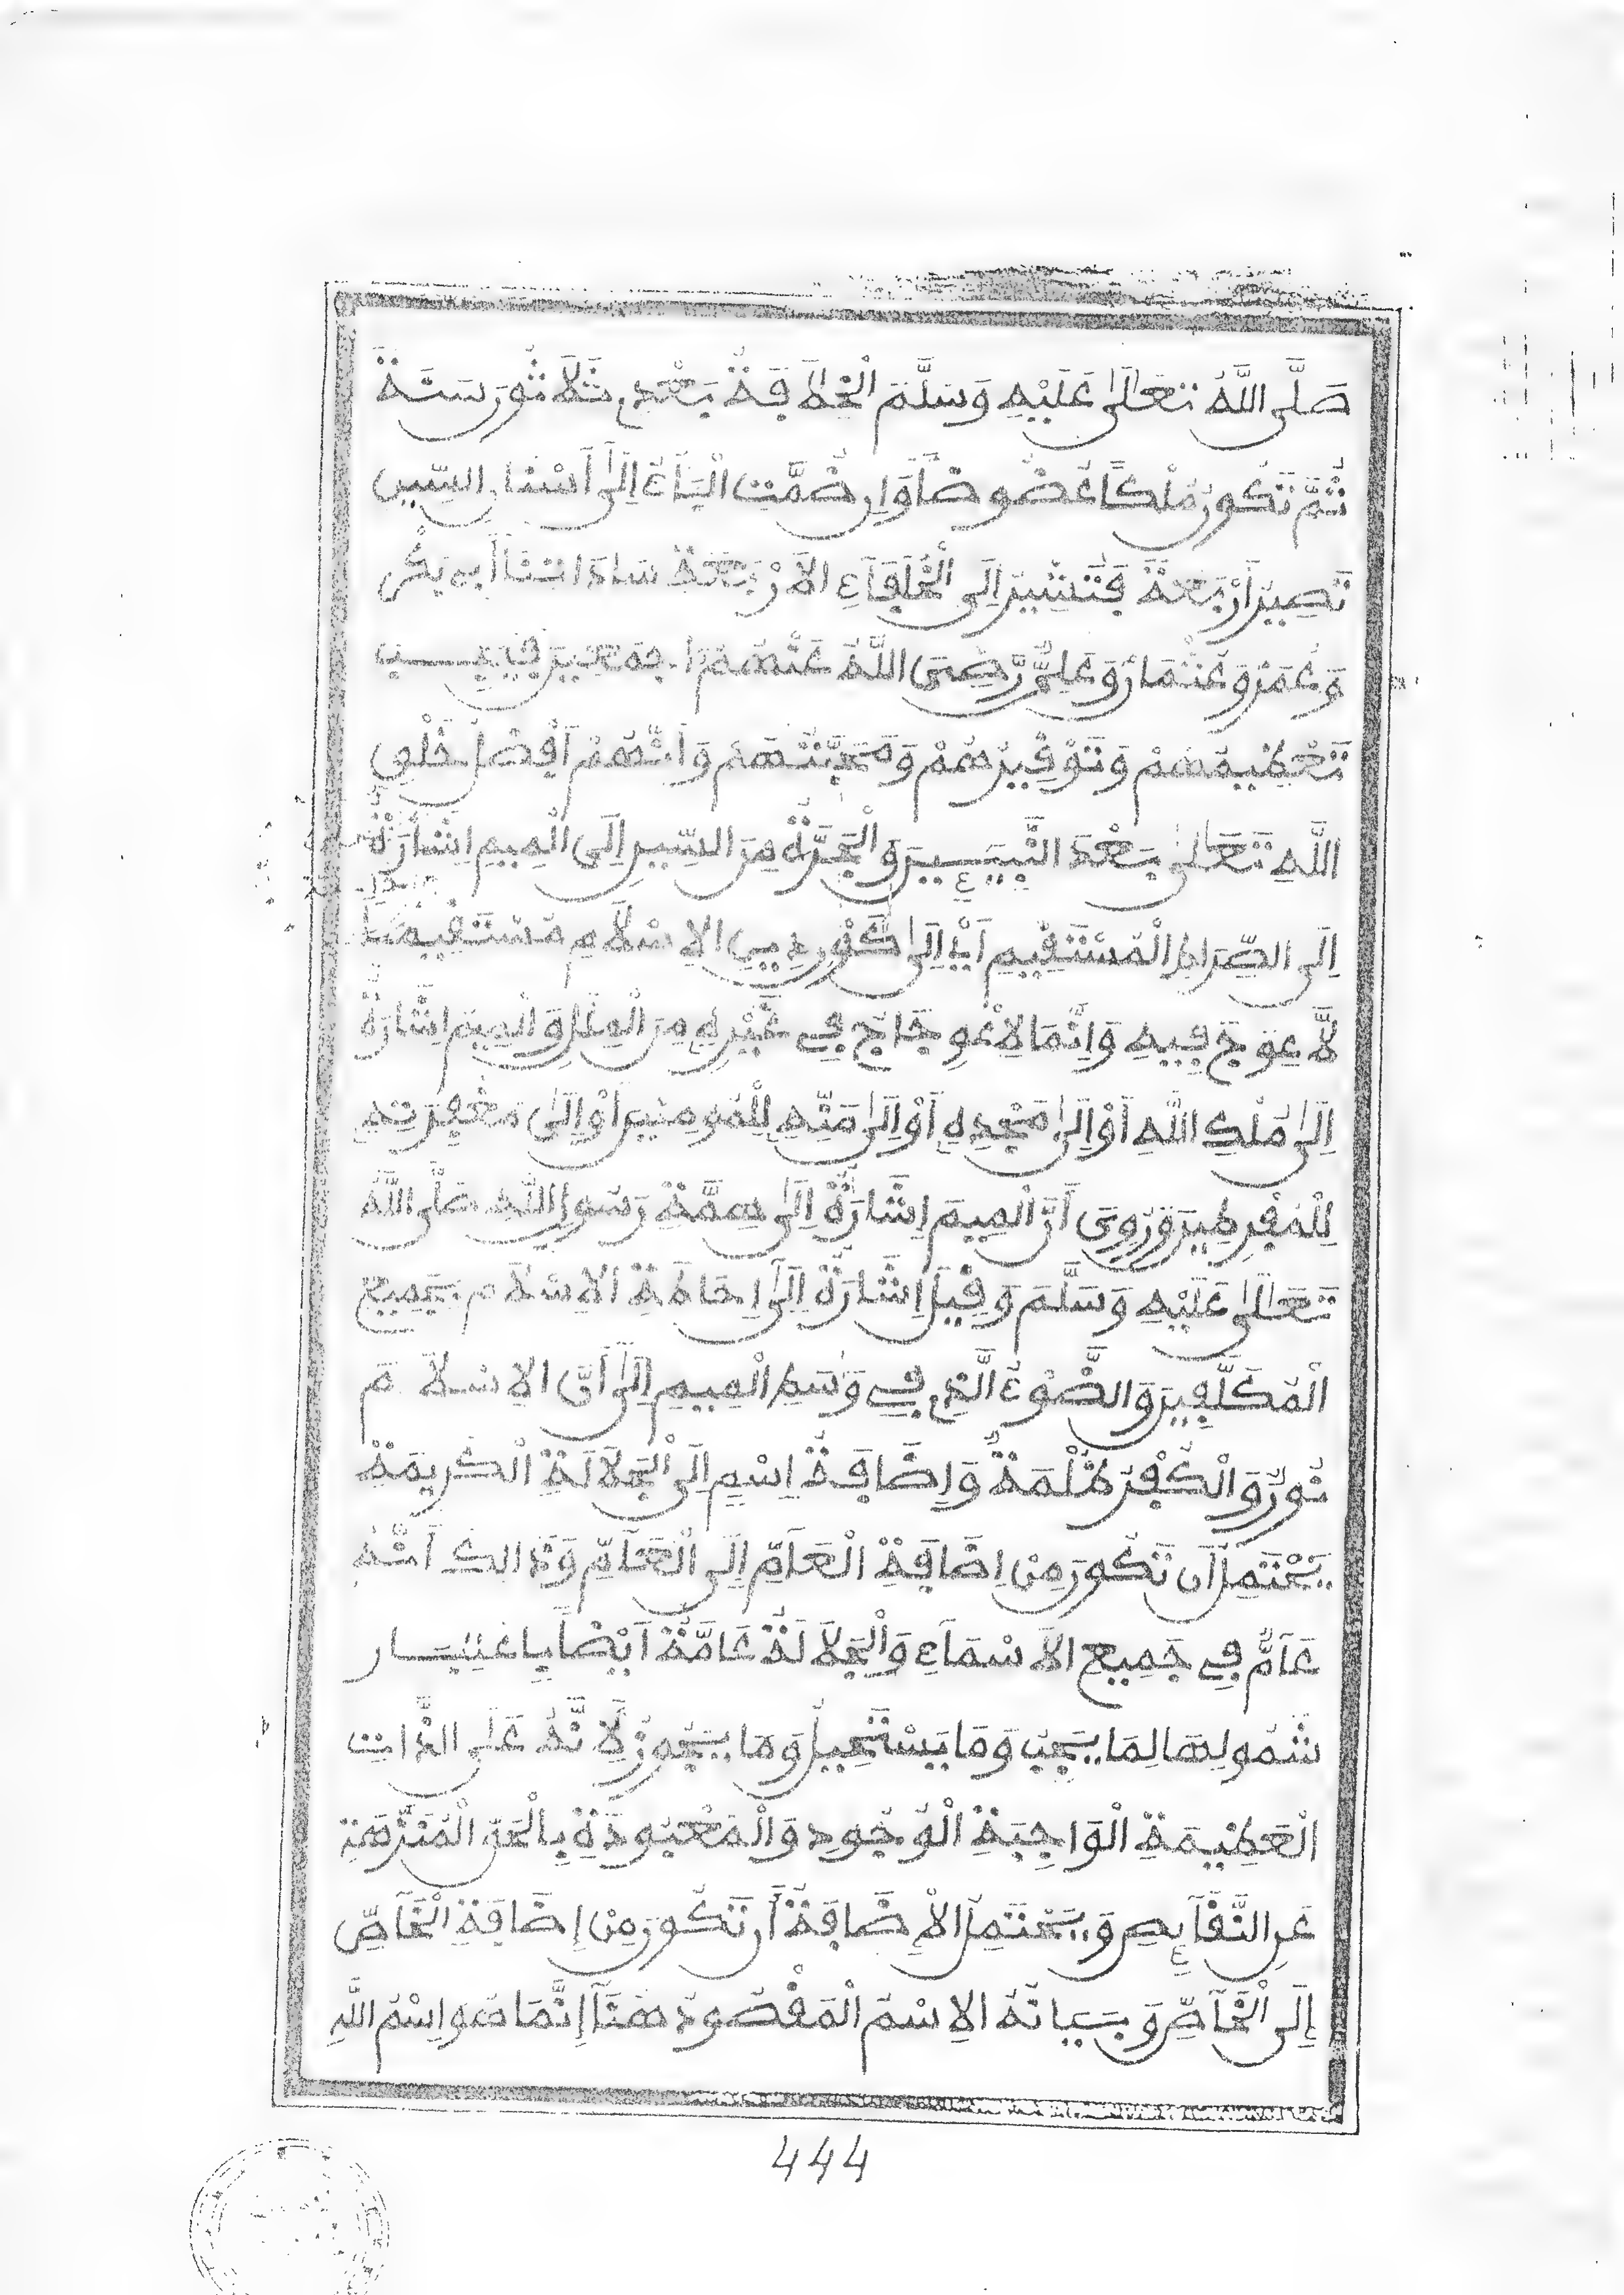 صَلَّى اللَّهُ تَعَالَىٰ عَلَيْهِ وَسَلَّمَ الْخِلَافَةُ بَعْدِي ثَلَاثُونَ سَنَةً
ثُمَّ تَكُونُ مُلْكًا عَضُوضًا وَإِن ضُمَّتِ الْبَاءُ إِلَىٰ أَسْنَانِ السِّينِ
تَصِيرُ أَرْبَعَةً فَتُشِيرُ إِلَى الْخُلَفَاءِ الْأَرْبَعَةِ سَادَاتِنَا أَبِي بَكْرٍ
وَعُمَرَ وَعُثْمَانَ وَعَلِيٍّ رَّضِيَ اللَّهُ عَنْهُمْ أَجْمَعِينَ فَيَجِبُ
تَعْظِيمُهُمْ وَتَوْقِيرُهُمْ وَمَحَبَّتُهُمْ وَأَنَّهُمْ أَفْضَلُ خَلْقِ
اللَّهِ تَعَالَىٰ بَعْدَ النَّبِيئِينَ وَالْجَرَّةُ مِنَ السِّينِ إِلَى الْمِيمِ إِشَارَةٌ
إِلَى الصِّرَاطِ الْمُسْتَقِيمِ أَيْ إِلَىٰ كَوْنِ دِينِ الْإِسْلَامِ مُسْتَقِيمًا
لَّا عِوَجَ فِيهِ وَإِنَّمَا الِاعْوِجَاجُ فِي غَيْرِهِ مِنَ الْمِلَلِ وَالْمِيمُ إِشَارَةٌ
إِلَىٰ مُلْكِ اللَّهِ أَوْ إِلَىٰ مَجْدِهِ أَوْ إِلَىٰ مَنِّهِ لِلْمُومِنِينَ أَوْ إِلَىٰ مَغْفِرَتِهِ
لِلْمُفْرِطِينَ وَرُوِيَ أَنَّ الْمِيمَ إِشَارَةٌ إِلَىٰ هِمَّةِ رَسُولِ اللَّهِ صَلَّى اللَّهُ
تَعَالَىٰ عَلَيْهِ وَسَلَّمَ وَقِيلَ إِشَارَةٌ إِلَىٰ إِحَاطَةِ الْإِسْلَامِ بِجَمِيعِ
الْمُكَلَّفِينَ وَالضَّوْءُ الَّذِي فِي وَسَطِ الْمِيمِ إِلَىٰ أَنَّ الْإِسْلَامَ
نُورٌ وَالْكُفْرَ ظُلْمَةٌ وَإِضَافَةُ إِسْمٍ إِلَى الْجَلَالَةِ الْكَرِيمَةِ
يَحْتَمِلُ أَن تَكُونَ مِنْ إِضَافَةِ الْعَامِّ إِلَى الْعَامِّ وَذَالِكَ أَنَّهُ
عَامٌّ فِي جَمِيعِ الْأَسْمَاءِ وَالْجَلَالَةُ عَامَّةٌ أَيْضًا بِاعْتِبَارِ
شُمُولِهَا لِمَا يَجِبُ وَمَا يَسْتَحِيلُ وَمَا يَجُوزُ لِأَنَّهُ عَلَى الذَّاتِ
الْعَظِيمَةِ الْوَاجِبَةِ الْوُجُودِ وَالْمَعْبُودَةِ بِالْحَقِّ الْمُنَزَّهَةِ
عَنِ النَّقَائِصِ وَيَحْتَمِلُ الْإِضَافَةُ أَن تَكُونَ مِنْ إِضَافَةِ الْخَاصِّ
إِلَى الْخَاصِّ وَبَيَانُهُ الْإِسْمُ الْمَقْصُودُ هُنَا إِنَّمَا هُوَ إِسْمُ اللَّهِ
444